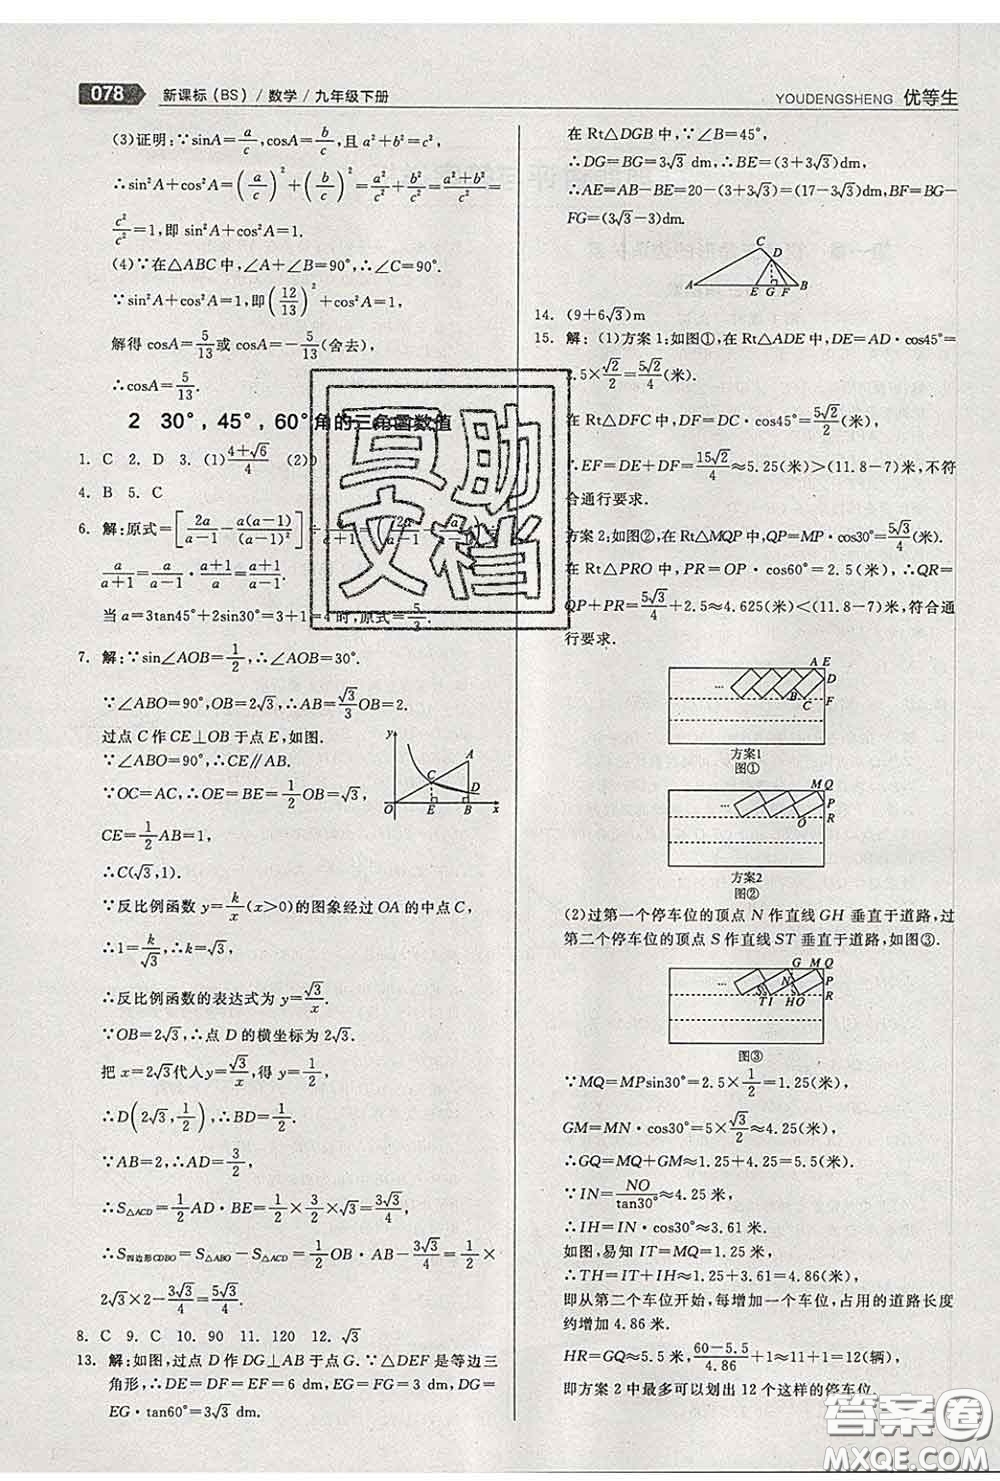 078 新课标(BS)/数学/九年级下册
YOUDENGSHENG 优等生
(3)证明:∵sinA=a/c,cosA=b/c,且a²+b²=c²,
∴sin²A+cos²A=(a/c)²+(b/c)²=a²/c²+b²/c²=(a²+b²)/c²=
c²/c²=1,即 sin²A+cos²A=1.
(4)∵在△ABC中,∠A+∠B=90°,∴∠C=90°.
∵sin²A+cos²A=1,即(12/13)²+cos²A=1,
解得 cosA=5/13或 cosA=-5/13(舍去),
∴cosA=5/13.
2 30°,45°,60°角的三角函数值
1. C 2. D 3. (1)(4+√6)/4 (2)0
4. B 5. C
6. 解:原式=[2a/(a-1)-a(a-1)/(a-1)²]
a/(a+1)=a/(a-1)·(a+1)/a=(a+1)/(a-1).
当a=3tan45°+2sin30°=3+1=4时,原式=5/3.
7. 解:∵sin∠AOB=1/2,∴∠AOB=30°.
∵∠ABO=90°,OB=2√3,∴AB=√3/3 OB=2.
过点C作CE⊥OB于点E,如图.
∵∠ABO=90°,∴CE∥AB.
∵OC=AC,∴OE=BE=1/2 OB=√3,
CE=1/2 AB=1,
∴C(√3,1).
∵反比例函数y=k/x(x>0)的图象经过OA的中点C,
∴1=k/√3,∴k=√3,
∴反比例函数的表达式为y=√3/x.
∵OB=2√3,∴点D的横坐标为2√3.
把x=2√3代入y=√3/x,得y=1/2,
∴D(2√3,1/2),∴BD=1/2.
∵AB=2,∴AD=3/2,
∴S△ACD=1/2 AD·BE=1/2×3/2×√3=3√3/4,
∴S四边形CDBO=S△ABO-S△ACD=1/2 OB·AB-3√3/4=1/2×
2√3×2-3√3/4=5√3/4.
8. C 9. C 10. 90 11. 120 12. √3
13. 解:如图,过点D作DG⊥AB于点G.∵△DEF是等边三
角形,∴DE=DF=EF=6 dm,EG=FG=3 dm,DG=
EG·tan60°=3√3 dm.
y A C D O E B x
在Rt△DGB中,∵∠B=45°,
∴DG=BG=3√3 dm,∴BE=(3+3√3)dm,
∴AE=AB-BE=20-(3+3√3)=(17-3√3)dm,BF=BG-
FG=(3√3-3)dm.
C D A E G F B
14. (9+6√3)m
15. 解:(1)方案1:如图①,在Rt△ADE中,DE=AD·cos45°=
2.5×√2/2=5√2/4(米).
在Rt△DFC中,DF=DC·cos45°=5√2/2(米),
∴EF=DE+DF=15√2/4≈5.25(米)>(11.8-7)米,不符
合通行要求.
方案2:如图②,在Rt△MQP中,QP=MP·cos30°=5√3/4(米).
在Rt△PRO中,PR=OP·cos60°=2.5(米),∴QR=
QP+PR=5√3/4+2.5≈4.625(米)<(11.8-7)米,符合通
行要求.
A E D B C F
方案1
图①
M Q P O R
方案2
图②
(2)过第一个停车位的顶点N作直线GH垂直于道路,过
第二个停车位的顶点S作直线ST垂直于道路,如图③.
G M Q N P S T I H O R
图③
∵MQ=MPsin30°=2.5×1/2=1.25(米),
GM=MN·cos30°=5×√3/2≈4.25(米),
∴GQ=MQ+GM≈1.25+4.25=5.5(米).
∵IN=NO/tan30°≈4.25(米),
∴IH=IN·cos30°≈3.61米.
如图,易知IT=MQ=1.25(米),
∴TH=IT+IH≈1.25+3.61=4.86(米),
即从第二个车位开始,每增加一个车位,占用的道路长度
约增加4.86米.
HR=GQ≈5.5(米),(60-5.5)/4.86+1≈11+1=12(辆),
即方案2中最多可以划出12个这样的停车位.
互助
文档
答案圈
MXQE.COM